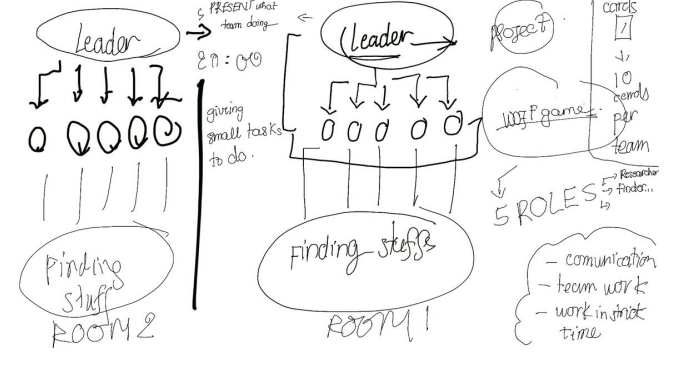 Leader
Finding
stuff
ROOM 2
PRESENT what
team doing
giving
small tasks
to do.
Leader
Finding stuffs
ROOM 1
project
game
5 ROLES
Researcher
finder...
cards
1
10
cards
per
team
- comunication
- team work
- work in strict
time